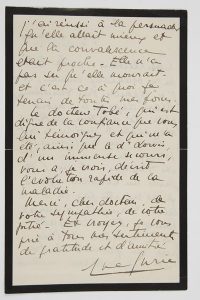 j'ai réussi à la persuader
qu'elle allait mieux et
que la convalescence
était proche. Elle n'a
pas su qu'elle mourait.
et c'est ce à quoi je
tenais de toutes mes forces.
Le docteur Tobé, qui est
digne de la confiance que vous
lui témoignez et qui m'a
été, ainsi que à
d'un immense secours,
vous a, je crois, décrit
l'évolution rapide de la
maladie.
Merci, cher docteur, de
votre sympathie, de votre
pitié. Et croyez, je vous
prie à tous mes sentiments
de gratitude et d'amitié
Eve Curie